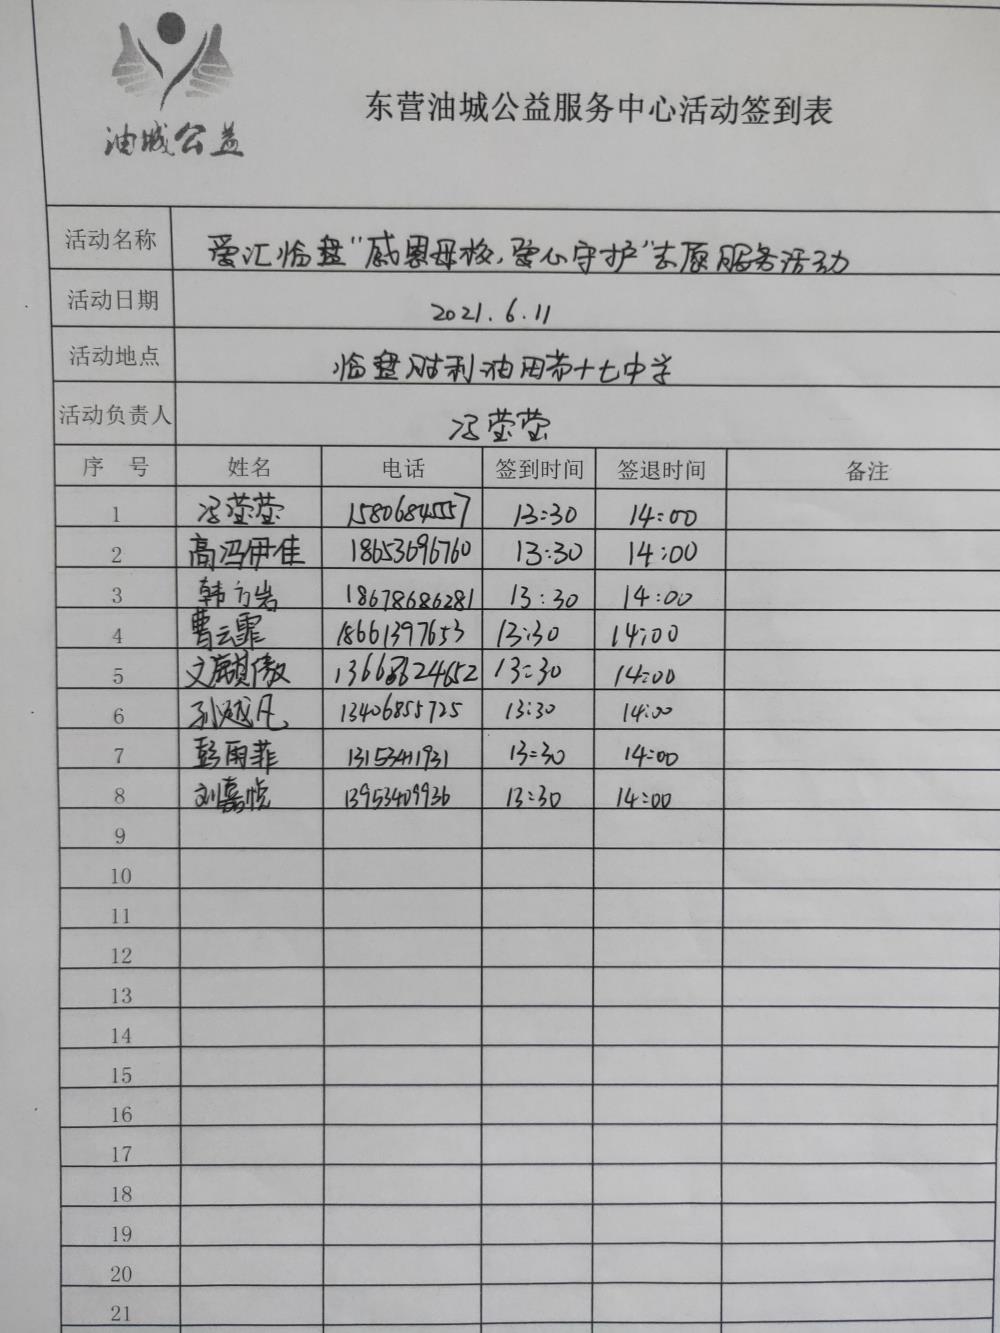 油城公益
东营油城公益服务中心活动签到表
活动名称 爱汇临盘"感恩母校,爱心守护"志愿服务活动
活动日期 2021.6.11
活动地点 临盘胜利油田第十七中学
活动负责人 冯莹莹
序 号 姓名 电话 签到时间 签退时间 备注
1 冯莹莹 15806845557 13:30 14:00
2 高冯伊佳 18653696760 13:30 14:00
3 韩方岩 18678686281 13:30 14:00
4 曹云霏 18661397653 13:30 14:00
5 文麒傲 13668624652 13:30 14:00
6 孙越凡 13406855725 13:30 14:00
7 彭雨菲 13153411931 13:30 14:00
8 刘嘉悦 13953409936 13:30 14:00
9
10
11
12
13
14
15
16
17
18
19
20
21